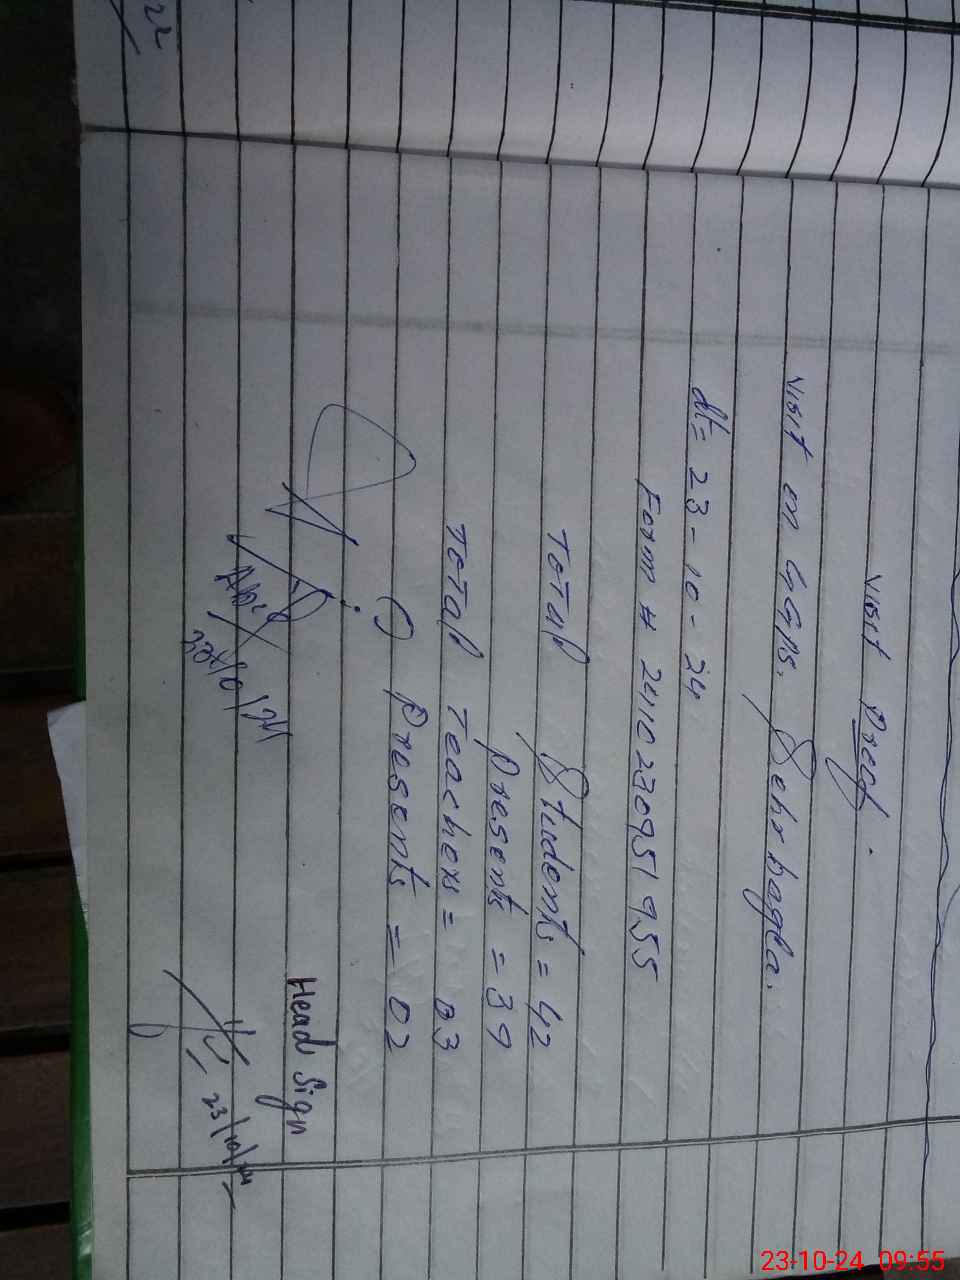 Visit Proof.
Visit on GGPS. Sehr bagla.
dt = 23-10-24
Form # 2410230951955
Total Students = 42
Presents = 39
Total Teachers = 03
Presents = 02
Head Sign
23/10/24
23/10/24
22
23-10-24 09:55